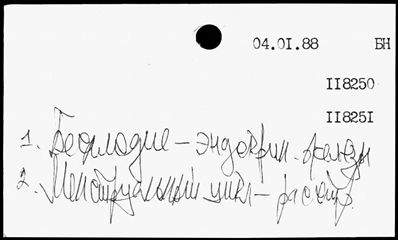 04.0I.88 БН
II8250
II825I
1. Бесплодие – эндокрин. железы
2. Менструальный цикл – расстр.